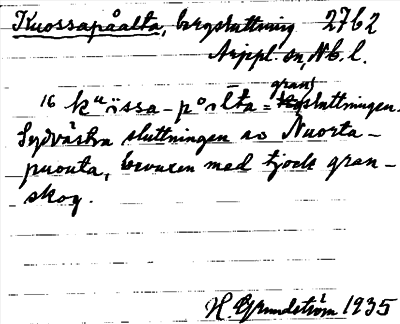 Kuossapåalta, bergsluttning 2762
Arjepl. sn, Nb. l.
16 kuossa-pålta = gransluttningen.
Sydvästra sluttningen av Nuorta-
puouta, bevuxen med tjock gran-
skog.
H. Grundström 1935